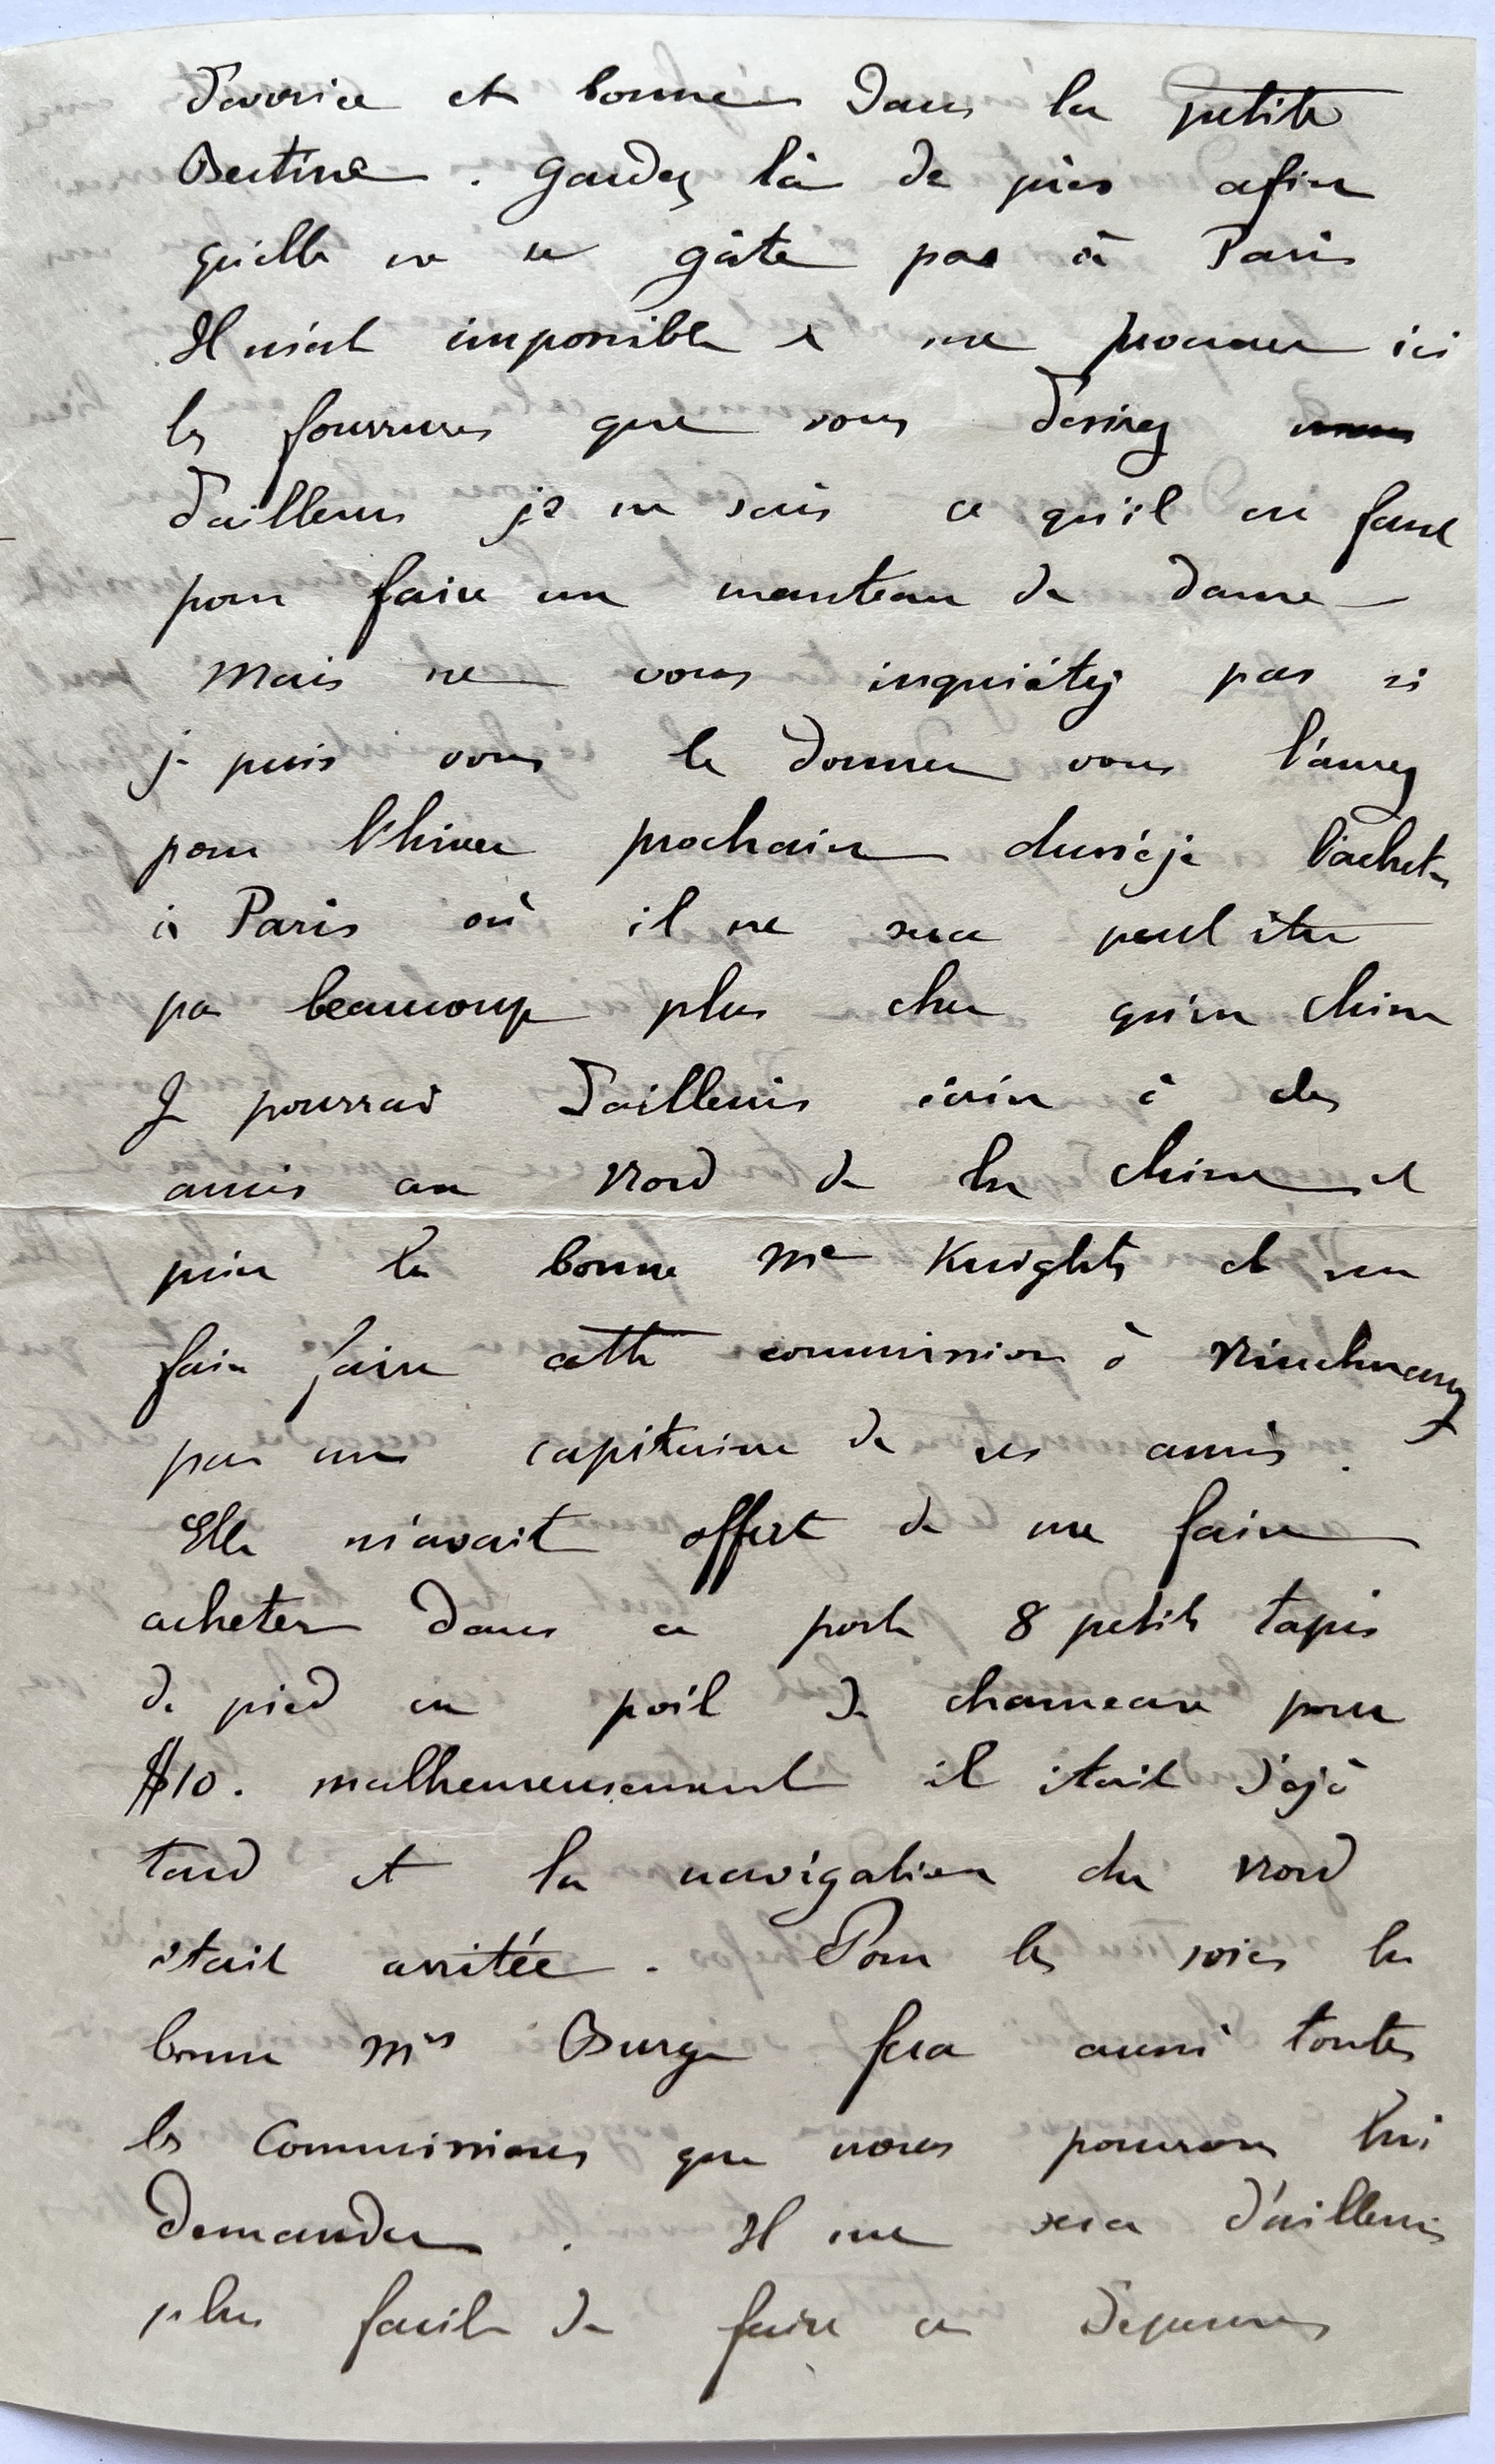 et bonne dans la petite
Gardez là de près afin
qu'elle ne se gâte pas à Paris
Il m'est impossible de me procurer ici
les fourrures que vous désirez
d'ailleurs je ne sais ce qu'il en faut
pour faire un manteau de dame —
Mais ne vous inquiétez pas si
je puis vous le donner vous l'aurez
pour l'hiver prochain dussé-je l'acheter
à Paris où il ne sera peut être
pas beaucoup plus cher qu'en Chine
Je pourrai d'ailleurs écrire à des
amis au Nord de la Chine et
prier la bonne Me Knights de me
faire faire cette commission à Ninchwang
par un capitaine de ses amis.
Elle m'avait offert de me faire
acheter dans ce port 8 petits tapis
de pied en poil de chameau pour
$10. malheureusement il était déjà
tard et la navigation du Nord
était arrêtée. Pour les soies la
bonne Mrs Burge fera aussi toutes
les commissions que nous pourrons lui
demander. Il me sera d'ailleurs
plus facile de faire ces dépenses